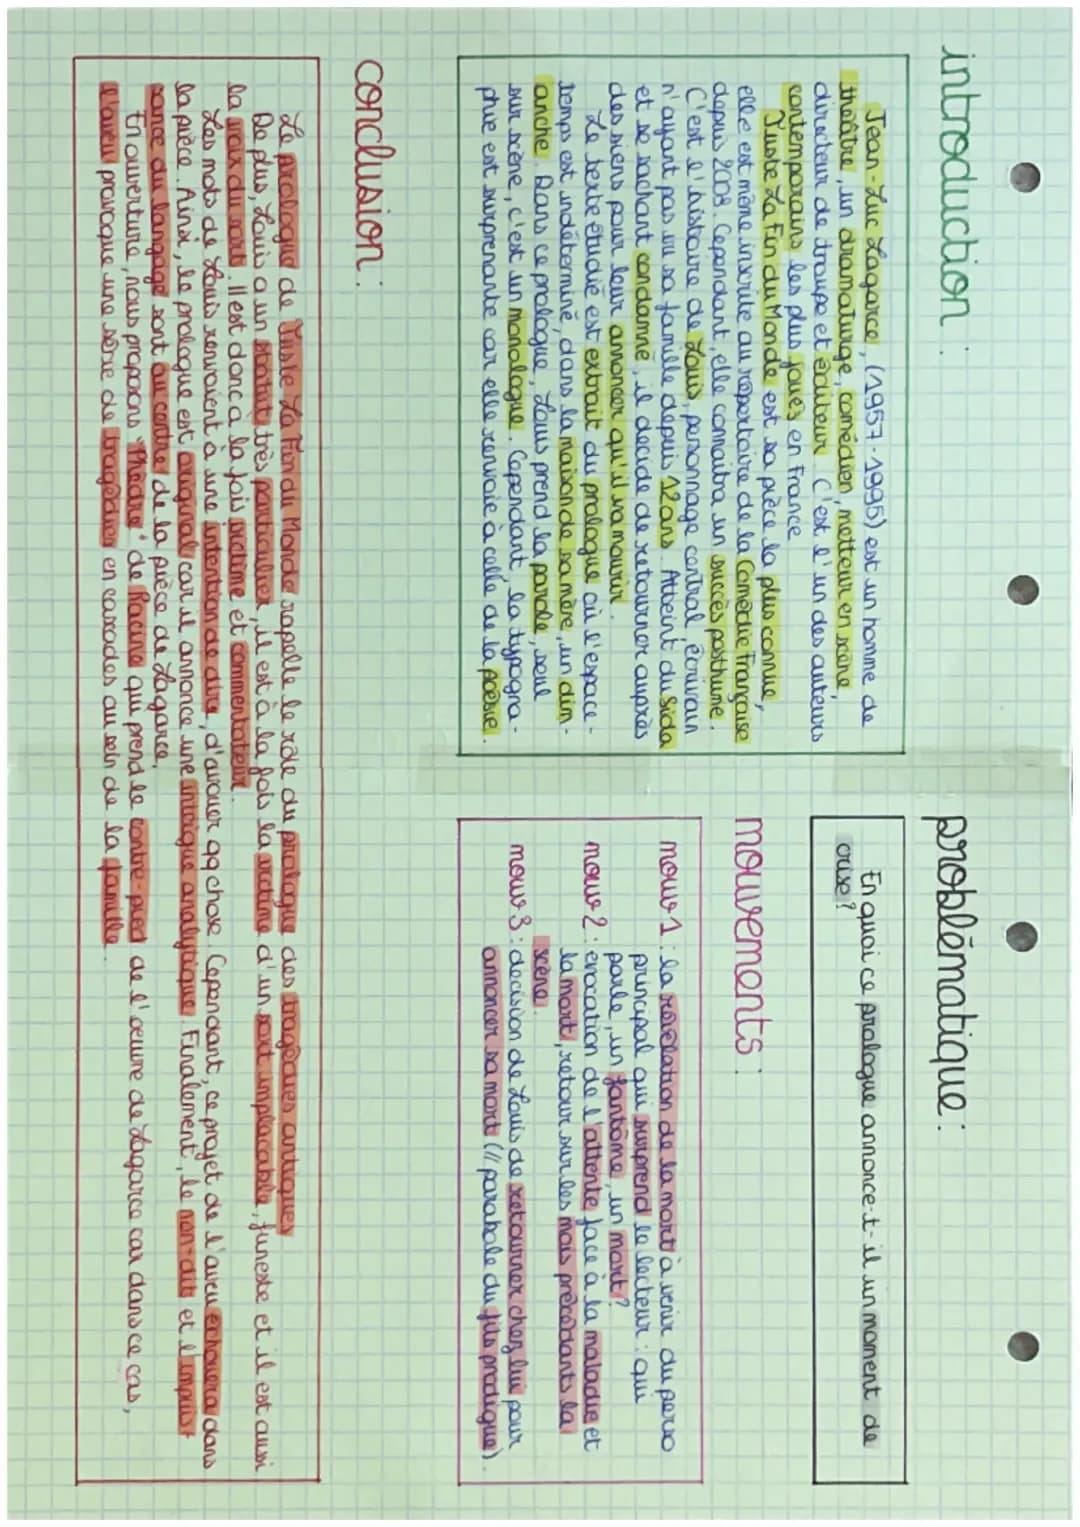 introduction :
Jean-Luc Lagarce, (1957-1995) est un homme de
théâtre, un dramaturge, comédien, metteur en scène,
directeur de troupe et éditeur. C'est l'un des auteurs
contemporains les plus joués en France.
Juste La Fin du Monde est sa pièce la plus connue,
elle est même inscrite au répertoire de la Comédie Française
depuis 2008. Cependant, elle connaitra un succès posthume.
C'est l'histoire de Louis, personnage central, écrivain
n'ayant pas vu sa famille depuis 12 ans. Atteint du Sida
et se sachant condamné, il decide de retourner auprès
des siens pour leur annoncer qu'il va mourir.
Le texte étudié est extrait du prologue où l'espace-
temps est indéterminé, dans la maison de sa mère, un dim-
anche. Dans ce prologue, Louis prend la parole, seul
sur scène, c'est un monologue. Cependant, la typogra-
phie est surprenante car elle renvoie à celle de la poésie.
problématique :
En quoi ce prologue annonce-t-il un moment de
crise?
mouvements :
mouv 1 : la révélation de la mort à venir du perso
principal qui surprend le lecteur : qui
parle, un fantôme, un mort?
mouv 2 : évocation de l'attente face à la maladie et
la mort, retour sur les mois précédants la
scène.
mouv 3 : decision de Louis de retourner chez lui pour
annoncer sa mort (// parabole du fils prodigue).
conclusion :
Le prologue de Juste La Fin du Monde rapelle le rôle du prologue des tragédies antiques
De plus, Louis a un statut très particulier, il est à la fois la victime d'un sort implacable, funeste et il est aussi
la voix du sort. Il est donc à la fois victime et commentateur.
Les mots de Louis renvoient à une intention de dire, d'avouer qq chose. Cependant, ce projet de l'aveu échouera dans
la pièce. Ainsi, le prologue est original car il annonce une intrigue analytique. Finalement, le non-dit et l'impuis-
sance du langage sont au centre de la pièce de Lagarce.
En ouverture, nous proposons "Phèdre" de Racine qui prend le contre-pied de l'oeuvre de Lagarce car dans ce cas,
l'aveu provoque une série de tragédies en cascades au sein de la famille.